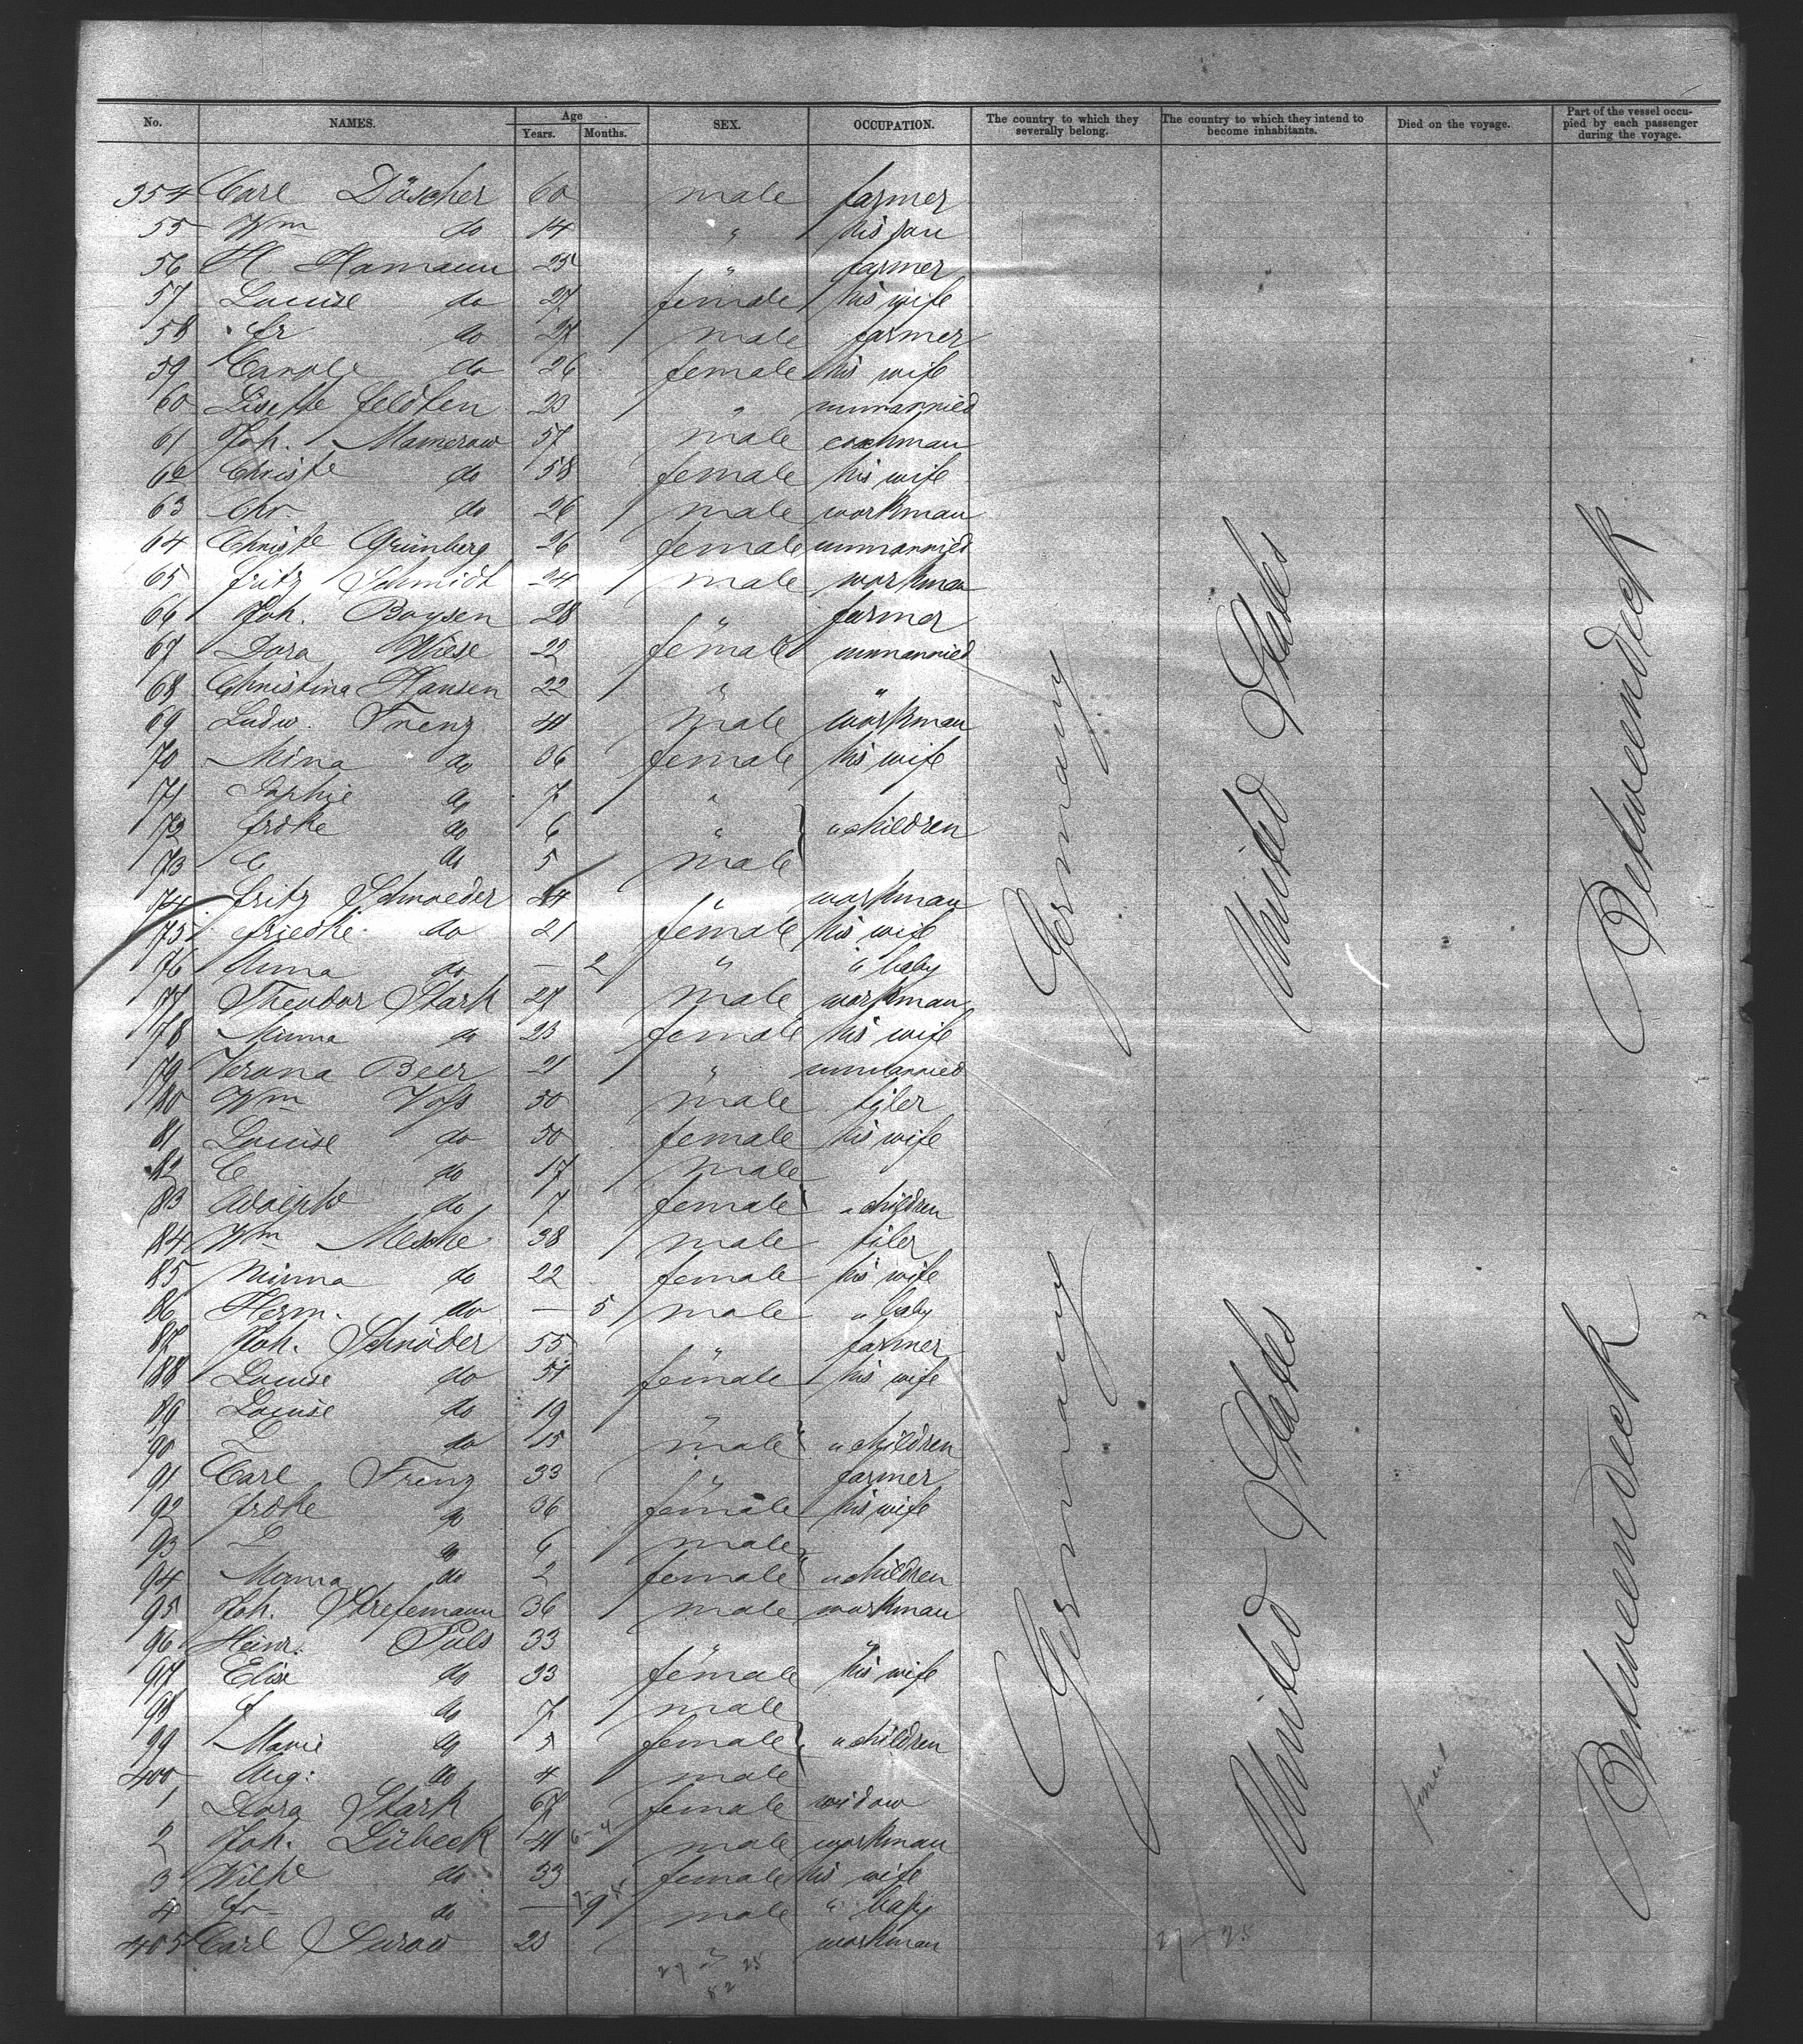 No. NAMES. Age Years. Months. SEX. OCCUPATION. The country to which they severally belong. The country to which they intend to become inhabitants. Died on the voyage. Part of the vessel occupied by each passenger during the voyage.
354 Carl Döscher 60 male farmer
55 Wm do 14 " his son
56 H. Hamann 25 " farmer
57 Louise do 27 female his wife
58 Fr do 27 male farmer
59 Carole do 26 female his wife
60 Lisette Feldten 23 " unmarried
61 Joh. Mamerow 57 male coachman
62 Christe do 58 female his wife
63 Chr. do 26 male workman
64 Christe Grünberg 26 female unmarried
65 Fritz Schmidt 24 male workman
66 Joh. Boysen 28 " farmer
67 Dora Wiese 22 female unmarried
68 Christina Hansen 22 " "
69 Ludw. Frenz 41 male workman
70 Mina do 36 female his wife
71 Sophie do 7 "
72 Frdke do 6 " " children
73 C do 5 male
74 Fritz Schroeder 24 " workman
75 Friedke do 21 female his wife
76 Anna do — 2 " " baby
77 Theodor Stark 27 male workman
78 Minna do 23 female his wife
79 Verona Beer 21 " unmarried
80 Wm Voss 50 male tiler
81 Louise do 50 female his wife
82 C do 17 male
83 Adolphe do 7 female " children
84 Wm Mesche 38 male tiler
85 Minna do 22 female his wife
86 Herm. do — 5 male " baby
87 Joh. Schröder 55 " farmer
88 Louise do 51 female his wife
89 Louise do 19 "
90 L do 15 male " children
91 Carl Frenz 33 " farmer
92 Frdke do 36 female his wife
93 L do 6 male
94 Minna do 2 female " children
95 Joh. Stresemann 36 male workman
96 Heinr. Puls 33 " "
97 Elise do 33 female his wife
98 J do 7 male
99 Marie do 5 female " children
400 Aug: do 4 male
1 Dora Stark 67 female widow
2 Joh. Lübeck 41 male workman
3 Wilhe do 33 female his wife
4 Fr do — 9 male " baby
405 Carl Surow 23 " workman
Germany United States Betweendeck
Germany United States Betweendeck
27 25
82
27 - 25